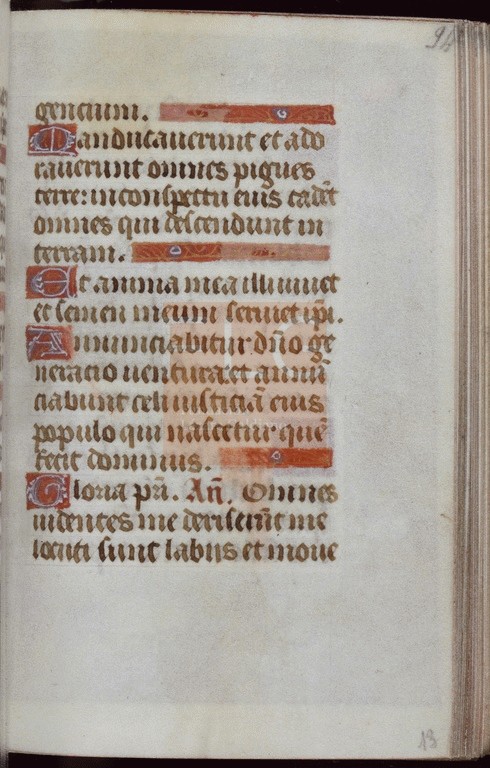 96
gencium.
Manducauerunt et ado
rauerunt omnes pigues
terre: in conspectu eius cadēt
omnes qui descendunt in
terram.
Et anima mea illi uiuet
et semen meum seruiet ip̄i.
Annunciabitur dn̄o ge
neracio uentura: et annū
ciabunt celi iusticiā eius
populo qui nascetur quē
fecit dominus.
Gloria pr̄i. An̄. Omnes
uidentes me deriserūt me
locuti sunt labijs et moue
13